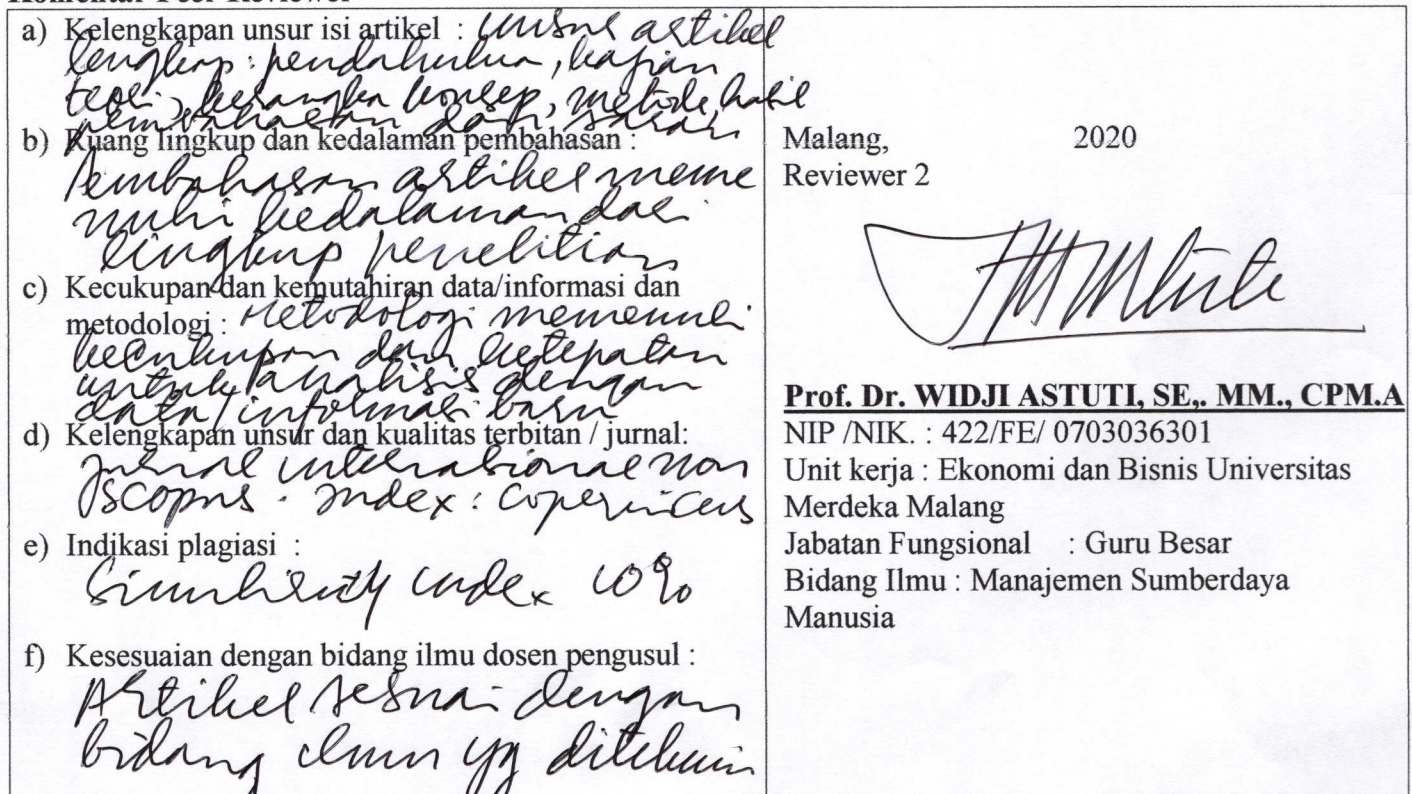 Komentar Peer Reviewer
a) Kelengkapan unsur isi artikel : unsur artikel
lengkap : pendahuluan, kajian
teori, kerangka konsep, metode, hasil
pembahasan dan saran
b) Ruang lingkup dan kedalaman pembahasan :
Pembahasan artikel meme
nuhi kedalaman dari
lingkup penelitian
c) Kecukupan dan kemutahiran data/informasi dan
metodologi : Metodologi memenuhi
kecukupan dan ketepatan
untuk analisis dengan
data/informasi baru
d) Kelengkapan unsur dan kualitas terbitan / jurnal:
Jurnal internasional non
scopus. Index : Copernicus
e) Indikasi plagiasi :
Similarity index 10%
f) Kesesuaian dengan bidang ilmu dosen pengusul :
Artikel sesuai dengan
bidang ilmu yg ditekuni
Malang, 2020
Reviewer 2
Prof. Dr. WIDJI ASTUTI, SE,. MM., CPM.A
NIP /NIK. : 422/FE/ 0703036301
Unit kerja : Ekonomi dan Bisnis Universitas
Merdeka Malang
Jabatan Fungsional : Guru Besar
Bidang Ilmu : Manajemen Sumberdaya
Manusia